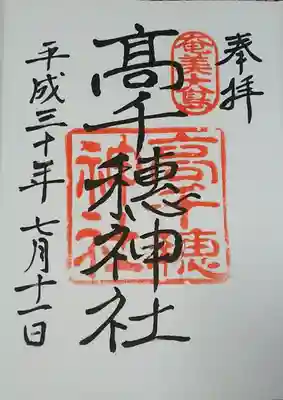 奉拝
奄美大島
高千穂神社
高千穂
神社
平成三十年七月十一日